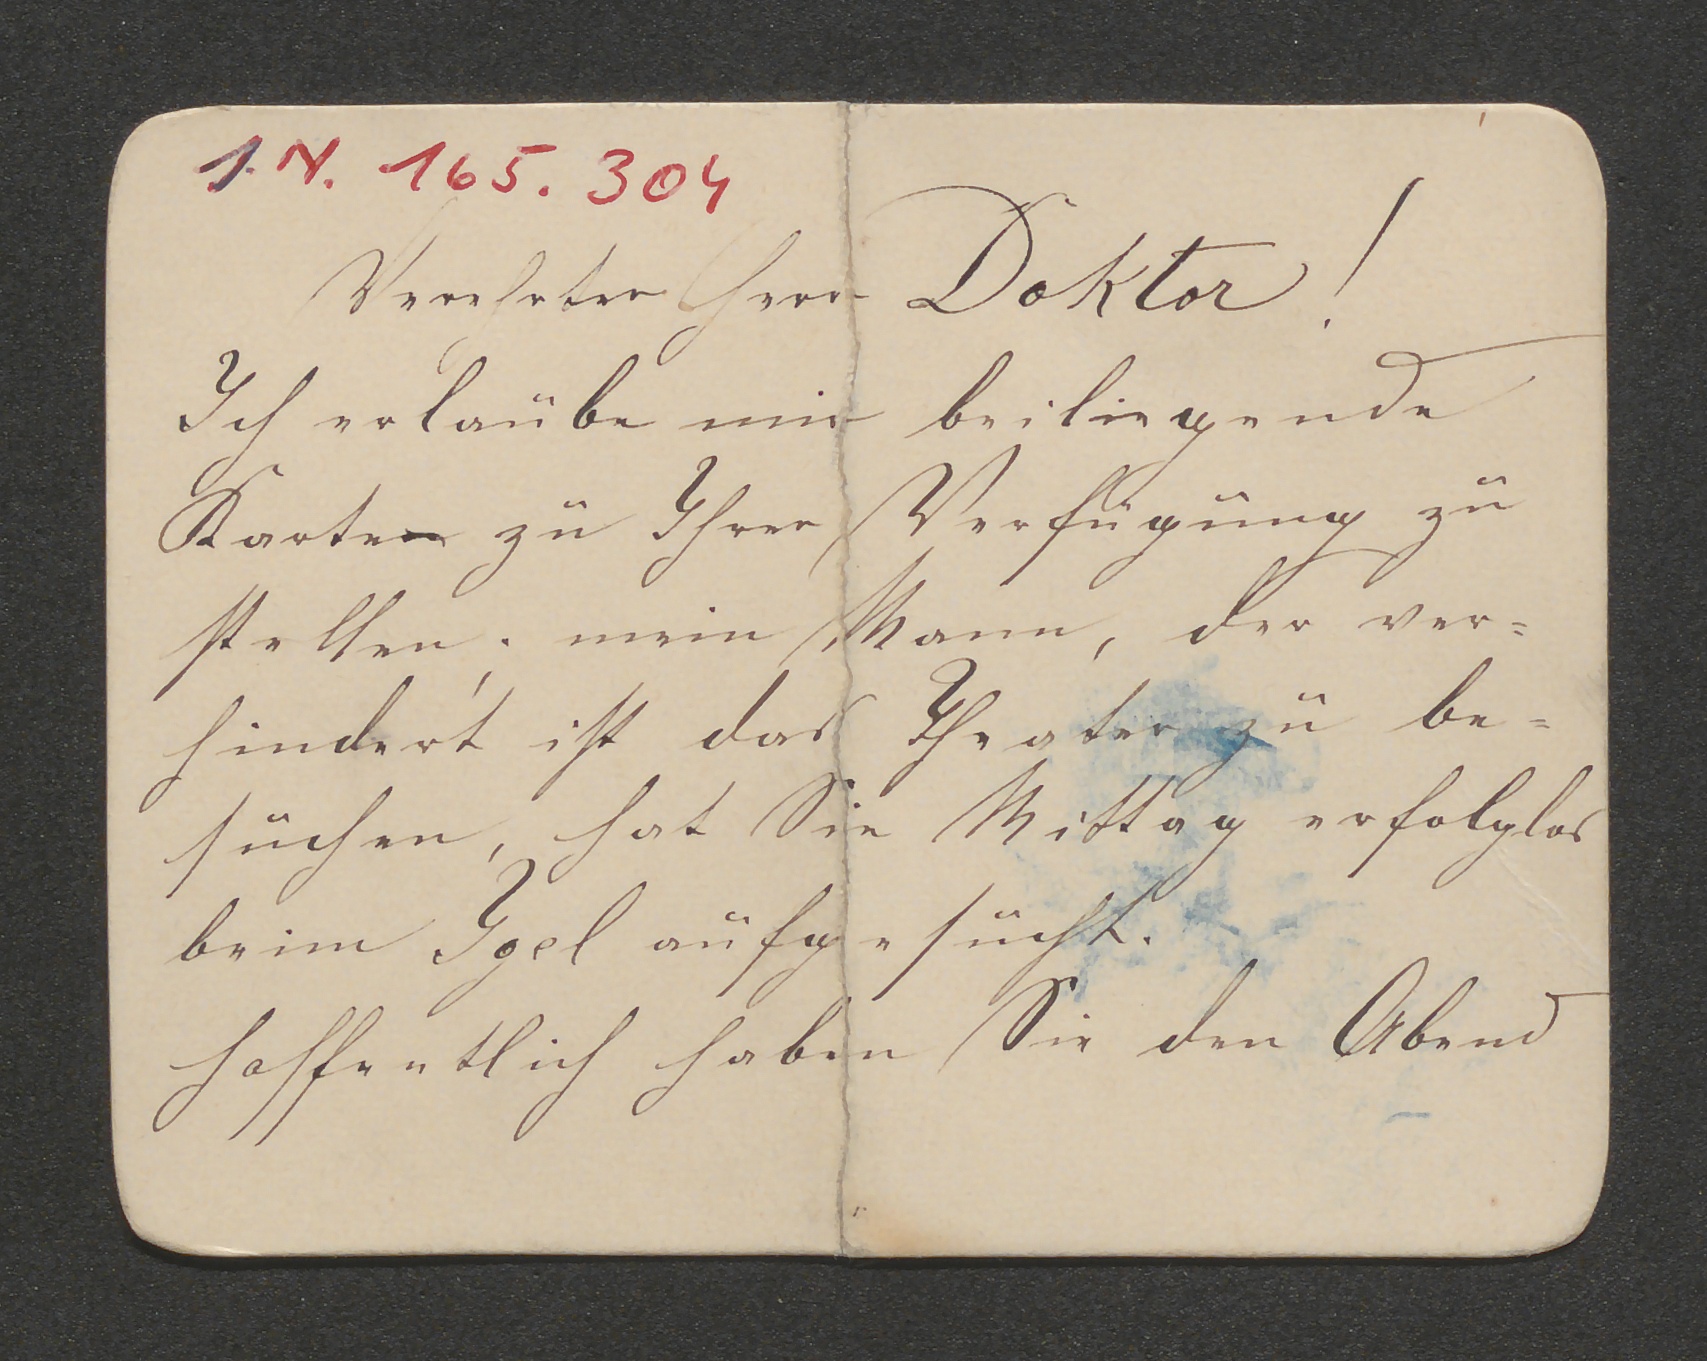 I.N. 165.304
Verehrter Herr Doktor!
Ich erlaube mir beiliegende
Karten zu Ihrer Verfügung zu
stellen; mein Mann, der ver=
hindert ist das Theater zu be=
suchen, hat Sie Mittag erfolglos
beim Igel aufgesucht.
hoffentlich haben Sie den Abend